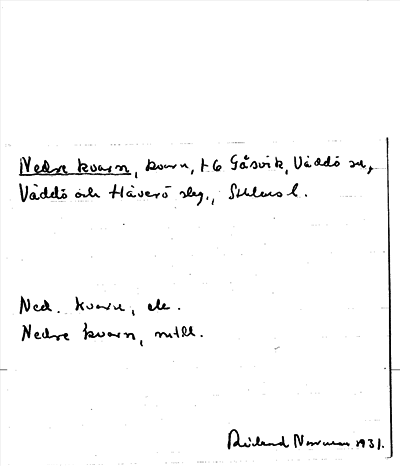 Nedre kvarn, kvarn, t. G Gåsvik, Väddö sn,
Väddö och Häverö slg., Sthlms l.
Ned. kvarn, ek.
Nedre kvarn, mtll.
Norman 1931.